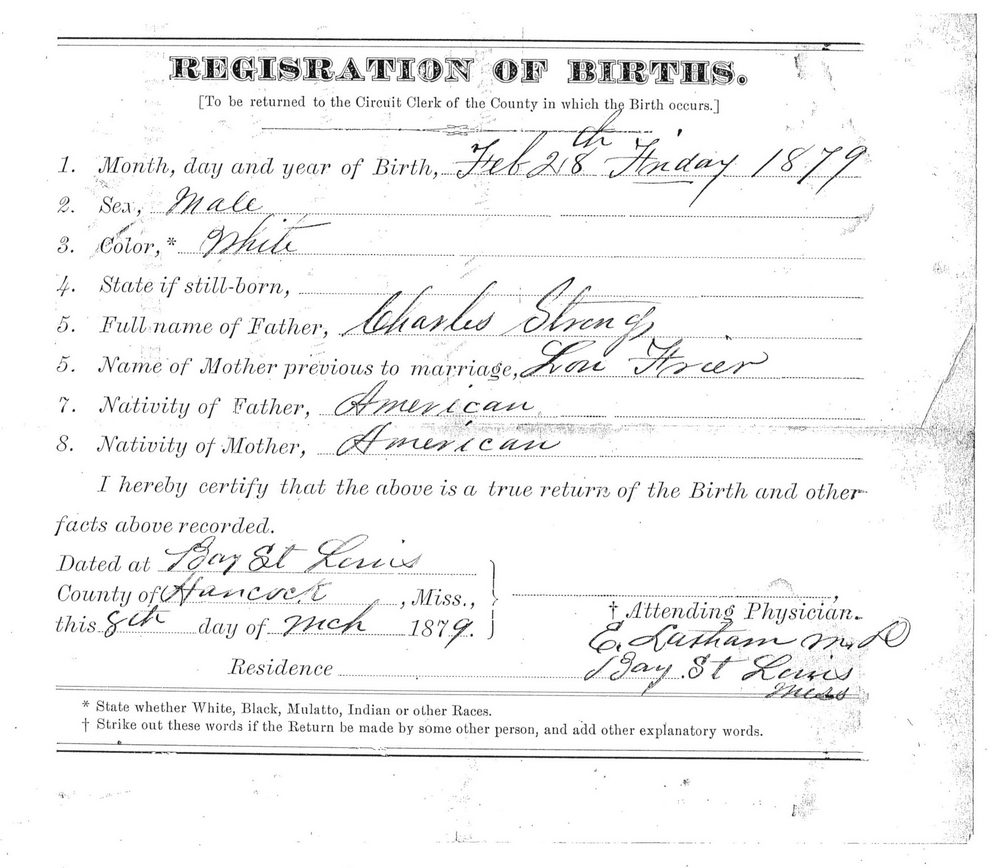 REGISRATION OF BIRTHS.
[To be returned to the Circuit Clerk of the County in which the Birth occurs.]
1. Month, day and year of Birth, Feb 28th Friday 1879
2. Sex, Male
3. Color,* White
4. State if still-born,
5. Full name of Father, Charles Strong
5. Name of Mother previous to marriage, Lou Frier
7. Nativity of Father, American
8. Nativity of Mother, American
I hereby certify that the above is a true return of the Birth and other
facts above recorded.
Dated at Bay St Louis
County of Hancock, Miss.,
this 8th day of Mch 1879.
† Attending Physician.
E. M.D
Residence Bay St Louis
Miss
* State whether White, Black, Mulatto, Indian or other Races.
† Strike out these words if the Return be made by some other person, and add other explanatory words.